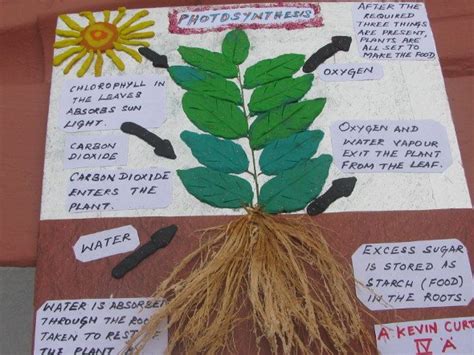 PHOTOSYNTHESIS
AFTER THE
REQUIRED
THREE THINGS
ARE PRESENT,
PLANTS ARE
ALL SET TO
MAKE THE FOOD.
OXYGEN
CHLOROPHYLL IN
THE LEAVES
ABSORBS SUN
LIGHT.
CARBON
DIOXIDE
CARBON DIOXIDE
ENTERS THE
PLANT.
OXYGEN AND
WATER VAPOUR
EXIT THE PLANT
FROM THE LEAF.
WATER
WATER IS ABSORBED
THROUGH THE ROO
TAKEN TO REST OF
THE PLANT
EXCESS SUGAR
IS STORED AS
STARCH (FOOD)
IN THE ROOTS.
A KEVIN CURT
IV 'A'